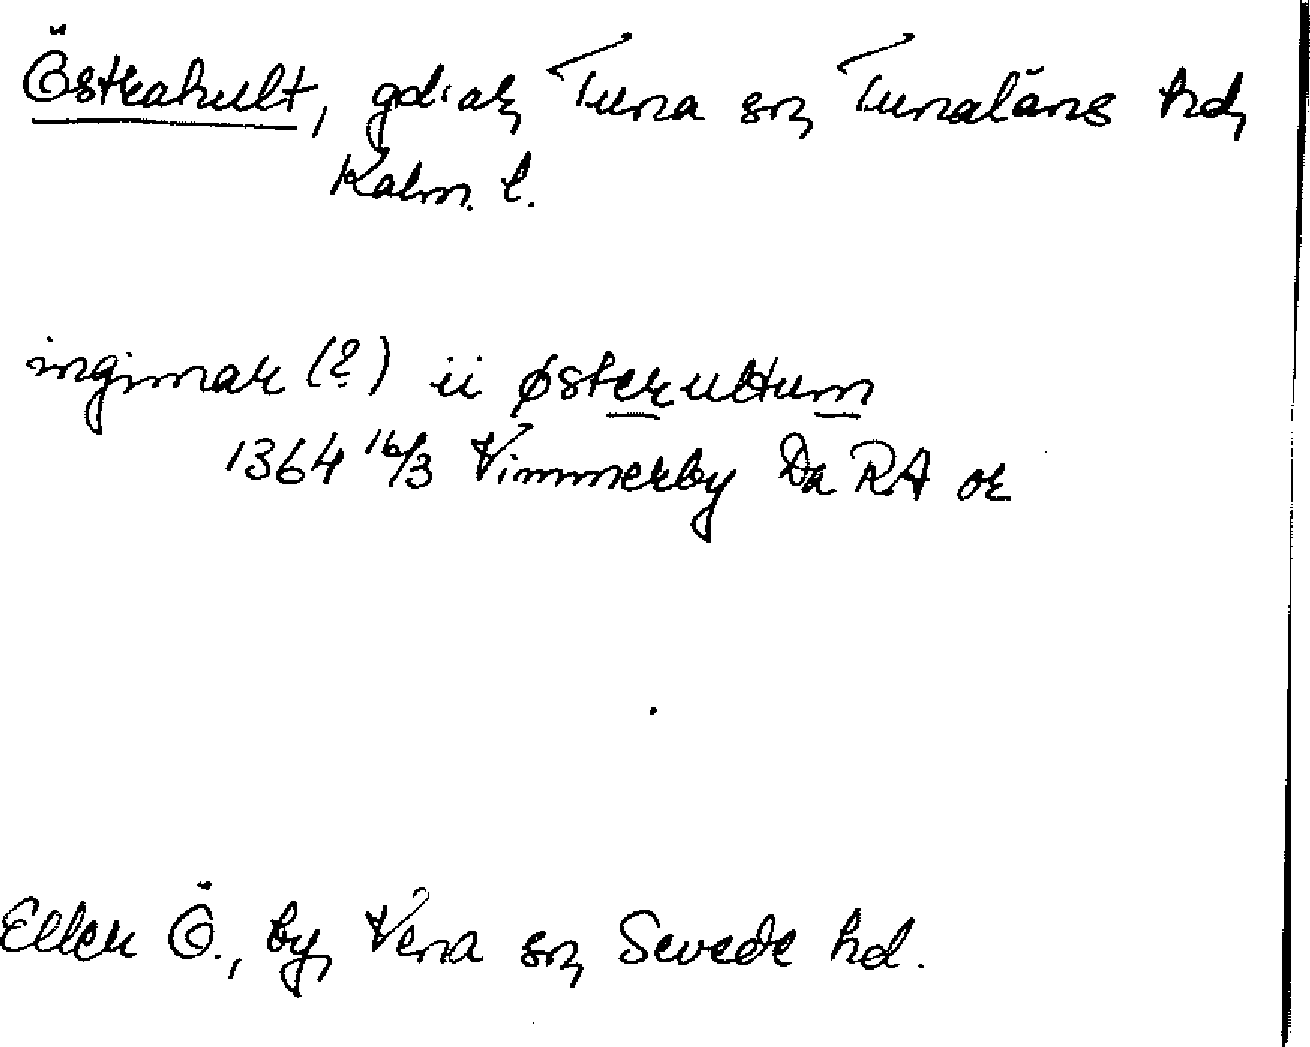 Östrahult, gdar, Tuna sn, Tunaläns hd,
Kalm. l.
ingimar (?) ii østerultum
1364 16/3 Vimmerby Da RA or
Eller Ö., by, Vena sn, Sevede hd.